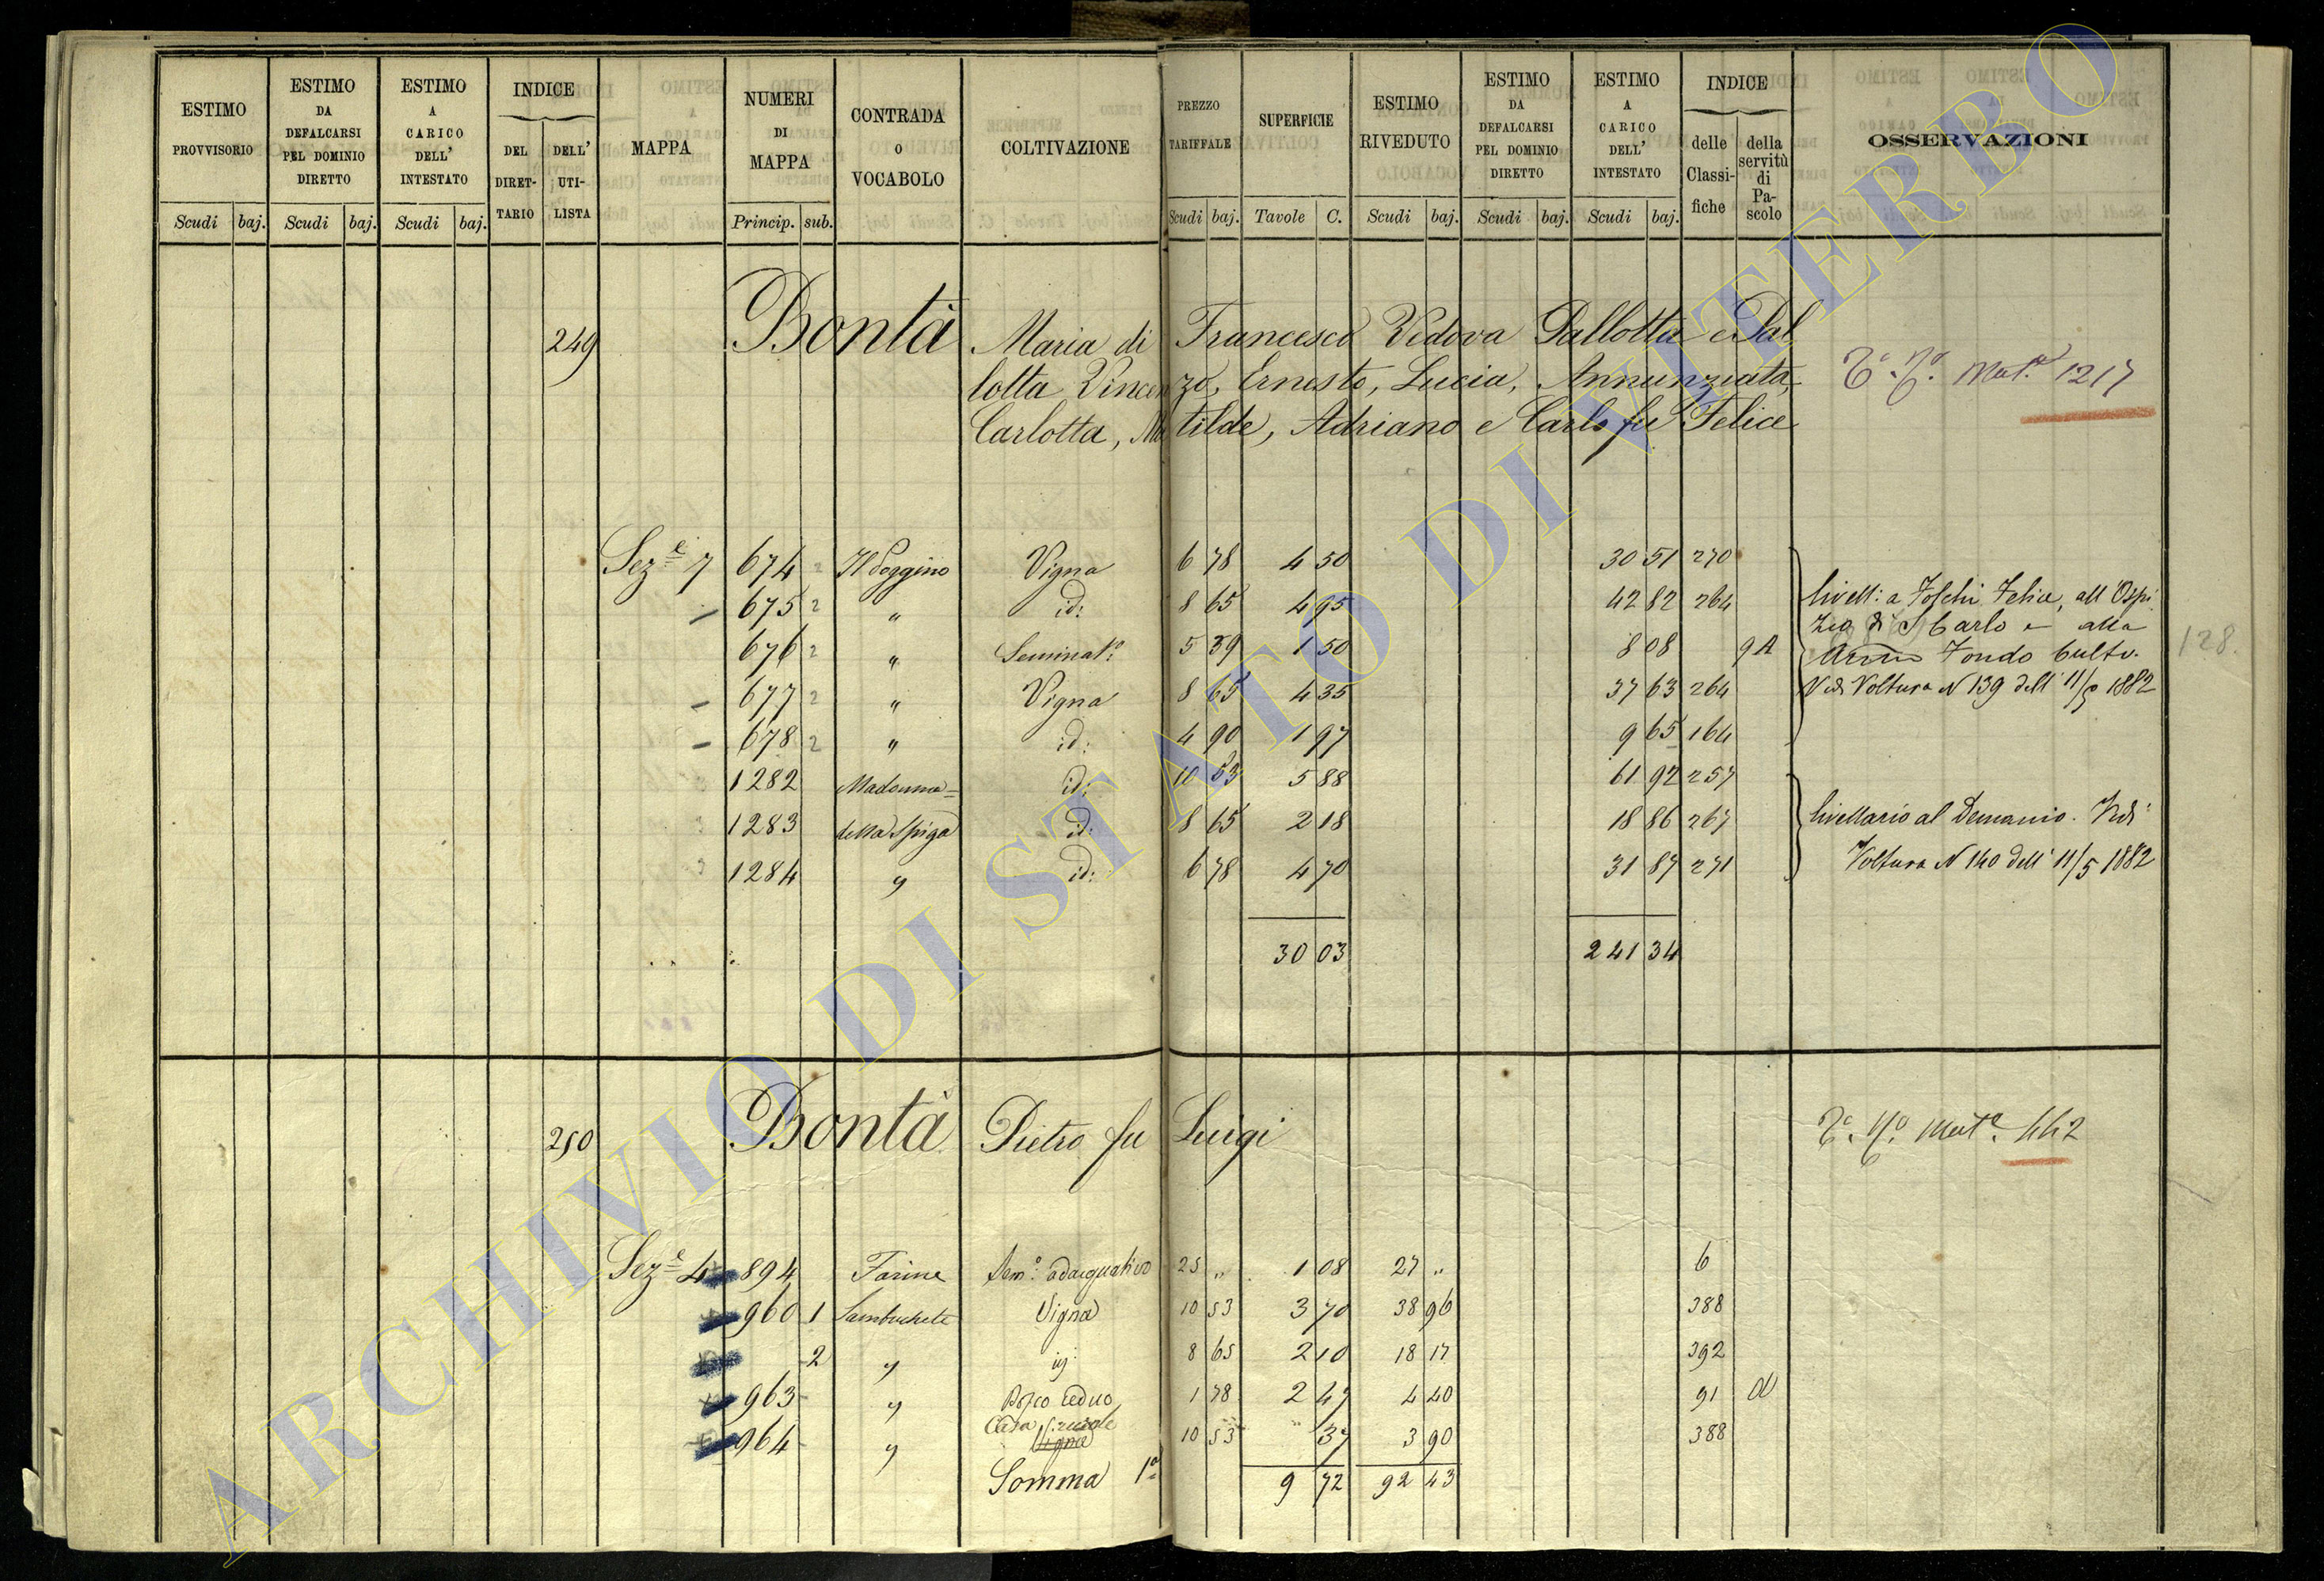 ESTIMO PROVVISORIO
ESTIMO DA DEFALCARSI PEL DOMINIO DIRETTO
ESTIMO A CARICO DELL' INTESTATO
INDICE
DEL DIRET-TARIO
DELL' UTI-LISTA
MAPPA
NUMERI DI MAPPA
CONTRADA O VOCABOLO
COLTIVAZIONE
PREZZO TARIFFALE
SUPERFICIE
ESTIMO RIVEDUTO
ESTIMO DA DEFALCARSI PEL DOMINIO DIRETTO
ESTIMO A CARICO DELL' INTESTATO
INDICE
delle Classi-fiche
della servitù di Pa-scolo
OSSERVAZIONI
Scudi baj. Scudi baj. Scudi baj. Princip. sub. Scudi baj. Tavole C. Scudi baj. Scudi baj. Scudi baj.
249 Bontà Maria di Francesco Vedova Pallotta e Pal
lotta Vincenzo, Ernesto, Lucia, Annunziata,
Carlotta, Matilde, Adriano e Carlo fu Felice
Mat.e 1217
Sez.e 7 674 2 Il Poggino Vigna 6 78 4 50 30 51 270
675 2 " id: 8 65 4 95 42 82 264
676 2 " Seminat.o 5 39 1 50 8 08 9 A
677 2 " Vigna 8 65 4 35 37 63 264
678 2 " id: 4 90 1 97 9 65 164
1282 Madonna= id: 10 53 5 88 61 92 257
1283 della Spiga id: 8 65 2 18 18 86 267
1284 " id: 6 78 4 70 31 87 271
30 03 241 34
Livell: a Toschi Felice, all'Ospi
zio di S Carlo e alla
Fondo Culto.
Vedi Voltura N 139 dell' 11/5 1882
128.
Livellario al Demanio. Vedi
Voltura N 140 dell' 11/5 1882
250 Bontà Pietro fu Luigi
Mat.e 442
Sez.e 4 894 Farine Sem.o adaequativo 25 " 1 08 27 " 6
960 1 Sambuchete Vigna 10 53 3 70 38 96 388
2 " id: 8 65 2 10 18 17 392
963 " Bosco ceduo 1 78 2 47 4 40 91
Casa rurale
964 " Vigna 10 53 " 37 3 90 388
Somma 1a 9 72 92 43
ARCHIVIO DI STATO DI VITERBO